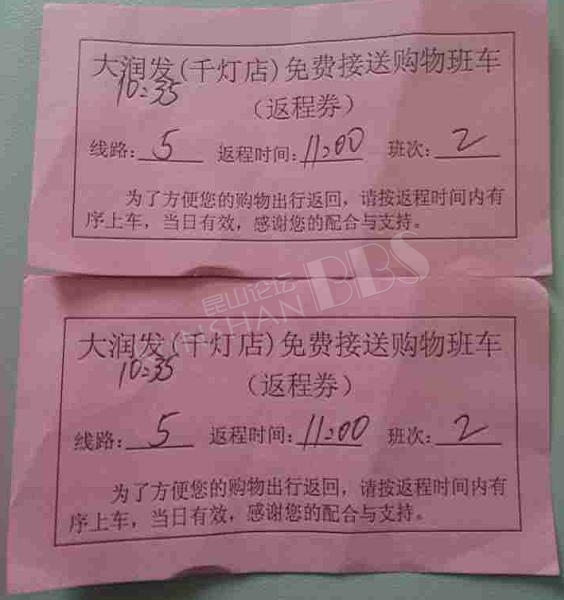 大润发(千灯店)免费接送购物班车
10:35
(返程券)
线路: 5 返程时间: 11:00 班次: 2
为了方便您的购物出行返回，请按返程时间内有
序上车，当日有效，感谢您的配合与支持。
昆山论坛
BBS
大润发(千灯店)免费接送购物班车
10:35
(返程券)
线路: 5 返程时间: 11:00 班次: 2
为了方便您的购物出行返回，请按返程时间内有
序上车，当日有效，感谢您的配合与支持。